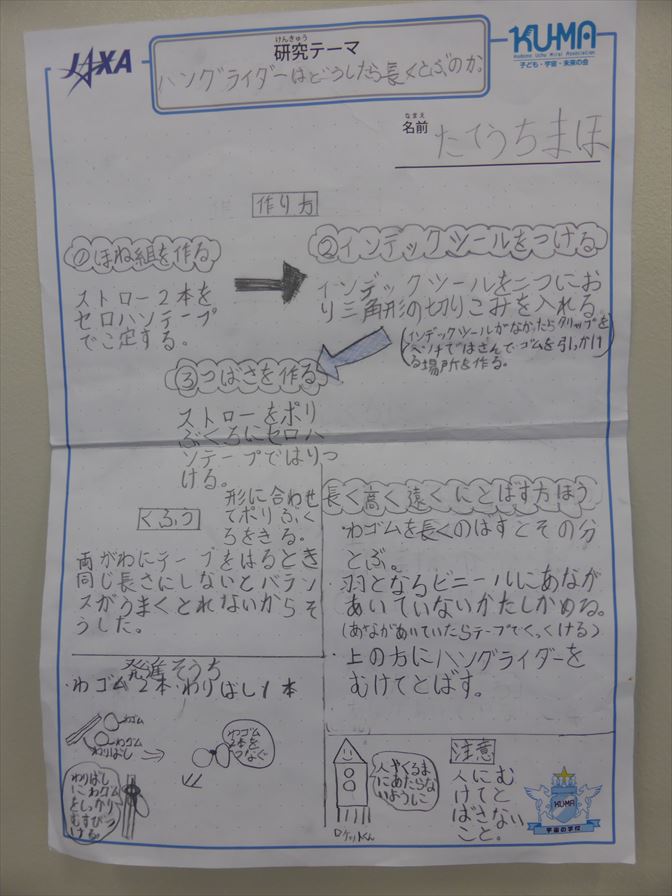 JAXA
けんきゅう
研究テーマ
ハングライダーはどうしたら長くとぶのか。
KU-MA
Kodomo Uchu Mirai Association
子ども・宇宙・未来の会
なまえ
名前
たてうちまほ
作り方
①ほね組を作る
ストロー2本を
セロハンテープ
でこ定する。
②インデックツールをつける
インデックツールを二つにお
り三角形の切りこみを入れる。
(インデックツールがなかったらクリップを
ペンチではさんでゴムを引っかけ
る場所を作る。)
③つばさを作る
ストローをポリ
ぶくろにセロハ
ンテープではりつ
ける。
形に合わせ
てポリぶく
ろをきる。
くふう
両がわにテープをはるとき
同じ長さにしないとバラン
スがうまくとれないからそ
うした。
長く高く遠くにとばす方ほう
・わゴムを長くのばすとその分
とぶ。
・羽となるビニールにあなが
あいていないかたしかめる。
(あながあいていたらテープでくっつける)
・上の方にハングライダーを
むけてとばす。
発進そうち
・わゴム2本・わりばし1本
わゴム
わゴム
わりばし
わゴム
2本を
つなぐ
わりばし
にわゴム
をしっかり
むすびつ
ける。
人やくるま
にあたらな
いようしに
ロケットくん
注意
人にむ
けてと
ばさない
こと。
KU-MA
宇宙の学校